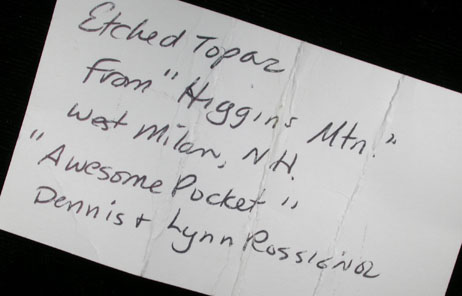 Etched Topaz
From "Higgins Mtn."
West Milan, N.H.
"Awesome Pocket"
Dennis + Lynn Rossignol